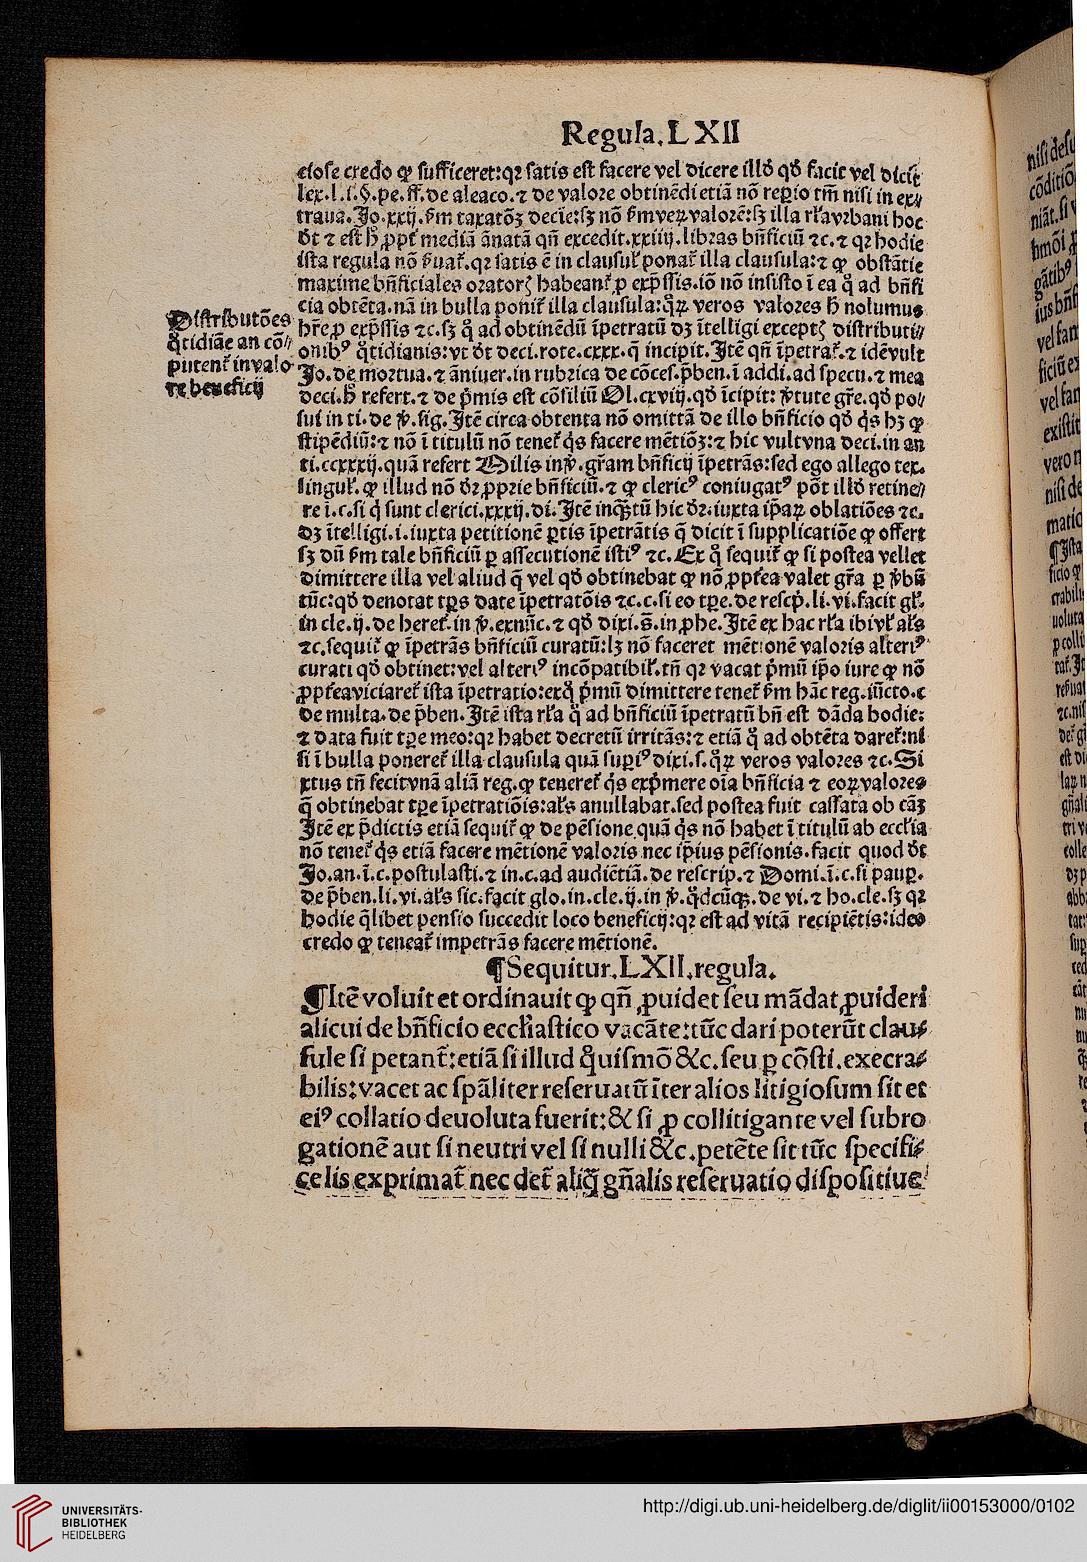 Regula.LXII
ciose credo ꝙ sufficeret:qꝛ satis est facere vel dicere illḋ qḋ facit vel dicit
lex.l.i.§.pe.ff.de aleato.⁊ de valore obtinēdi etiā nō reꝑio tm̄ nisi in ex⸗
traua.Jo.xxij.ẜm taxatōꝫ decīe:sꝫ nō ẜm veꝝ valorē:sꝫ illa rl̄a vrbani hoc
ḋt ⁊ est h̄ ꝓpt̄ mediā ānatā qn̄ excedit.xxiiij.libras bn̄ficiū ⁊c.⁊ qꝛ hodie
ista regula nō ẜuat̄.qꝛ satis ē in clausul̄ ponat̄ illa clausula:⁊ ꝙ obstātie
maxime bn̄ficiales oratoꝝ habeant̄ ꝓ exp̄ssis.iō nō insisto ī ea q̊ ad bn̄fi
cia obtēta.nā in bulla ponit̄ illa clausula:q̊ꝝ veros valores h̄ nolumus
hr̄e ꝓ exp̄ssis ⁊c.sꝫ q̊ ad obtinēdū īpetratū dꝫ ītelligi exceptꝭ distributi⸗
onibꝰ q̊tidianis:vt ḋt deci.rote.cxxx.q̄ incipit.Itē qn̄ īpetrat̄.⁊ idē vult
Jo.de mortua.⁊ āniuer.in rubrica de cōces.p̄ben.ī addi.ad specu.⁊ mea
deci.h̄ refert.⁊ de p̄mis est cōsiliū Ol.cxviij.qḋ īcipit: v̄tute gr̄e.qḋ po⸗
sui in ti.de v̄.sig.Itē circa obtenta nō omittā de illo bn̄ficio qḋ q̇s hꝫ ꝙ
stipēdiū:⁊ nō ī titulū nō tenet̄ q̇s facere mētiōꝫ:⁊ hic vult vna deci.in an
ti.ccxxxij.quā refert Milis in v̄.gr̄am bn̄ficij īpetrās:sed ego allego tex.
singul̄.ꝙ illud nō ḋꝛ ꝓprie bn̄ficiū.⁊ ꝙ clericꝰ coniugatꝰ pōt illḋ retine⸗
re i.c.si q̇ sunt clerici.xxxij.di.Itē inqꝫtū hic ḋꝛ.iuxta ip̄aꝝ oblatiōes ⁊c.
dꝫ ītelligi.i.iuxta petitionē ꝑtis īpetrātis q̄ dicit ī supplicatiōe ꝙ offert
sꝫ dū ẜm tale bn̄ficiū ꝑ assecutionē istiꝰ ⁊c.Ex q̊ sequit̄ ꝙ si postea vellet
dimittere illa vel aliud q̄ vel qḋ obtinebat ꝙ nō ꝓpt̄ea valet gr̄a ꝑ v̄bū
tūc:qḋ denotat tp̄s date īpetratōis ⁊c.c.si eo tꝑe.de rescp̄.li.vi.facit gl̄.
in cle.ij.de heret̄.in v̄.exnūc.⁊ qḋ dixi.s̄.in ꝓhe.Itē ex hac rl̄a ibi vl̄ al̄s
⁊c.sequit̄ ꝙ īpetrās bn̄ficiū curatū:lꝫ nō faceret mētionē valoris alteriꝰ
curati qḋ obtinet:vel alteriꝰ incōpatibil̄.tn̄ qꝛ vacat p̄mū ip̄o iure ꝙ nō
ꝓpt̄ea viciaret̄ ista īpetratio:ex q̊ p̄mū dimittere tenet̄ ẜm hāc reg.iūcto.c
de multa.de p̄ben.Itē ista rl̄a q̊ ad bn̄ficiū īpetratū bn̄ est dāda hodie:
⁊ data fuit tꝑe meo:qꝛ habet decretū irritās:⁊ etiā q̊ ad obtēta daret̄:ni
si ī bulla poneret̄ illa clausula quā suꝑiꝰ dixi.s.q̊ꝝ veros valores ⁊c.Si
xtus tn̄ fecit vnā aliā reg.ꝙ teneret̄ q̇s exp̄mere oīa bn̄ficia ⁊ eoꝝ valores
q̄ obtinebat tꝑe īpetratiōis:al̄s anullabat.sed postea fuit cassata ob cāꝫ
Itē ex p̄dictis etiā sequit̄ ꝙ de pēsione quā q̇s nō habet ī titulū ab eccl̄ia
nō tenet̄ q̇s etiā facere mētionē valoris nec ip̄ius pēsionis.facit quod ḋt
Jo.an.ī.c.postulasti.⁊ in.c.ad audiētiā.de rescrip.⁊ Domi.ī.c.si pauꝑ.
de p̄ben.li.vi.al̄s sic.facit glo.in.cle.ij.in v̄.q̊dcūqꝫ.de vi.⁊ ho.cle.sꝫ qꝛ
hodie q̄libet pensio succedit loco beneficij:qꝛ est ad vitā recipiētis:ideo
credo ꝙ teneat̄ impetrās facere mētionē.
Distributōes
q̊tidiāe an cō⸗
putent̄ in valo
re beneficij
¶Sequitur.LXII.regula.
¶Itē voluit et ordinauit ꝙ qn̄ ꝓuidet seu mādat ꝓuideri
alicui de bn̄ficio eccl̄iastico vacāte:tūc dari poterūt clau⸗
sule si petant̄:etiā si illud q̊uismō &c.seu ꝑ cōsti.execra⸗
bilis:vacet ac spāliter reseruatū īter alios litigiosum sit et
eiꝰ collatio deuoluta fuerit:& si ꝓ collitigante vel subro
gationē aut si neutri vel si nulli &c.petēte sit tūc specifi⸗
ce lis exprimat̄ nec det̄ aliq̄ gn̄alis reseruatio dispositiue
UNIVERSITÄTS-
BIBLIOTHEK
HEIDELBERG
http://digi.ub.uni-heidelberg.de/diglit/ii00153000/0102